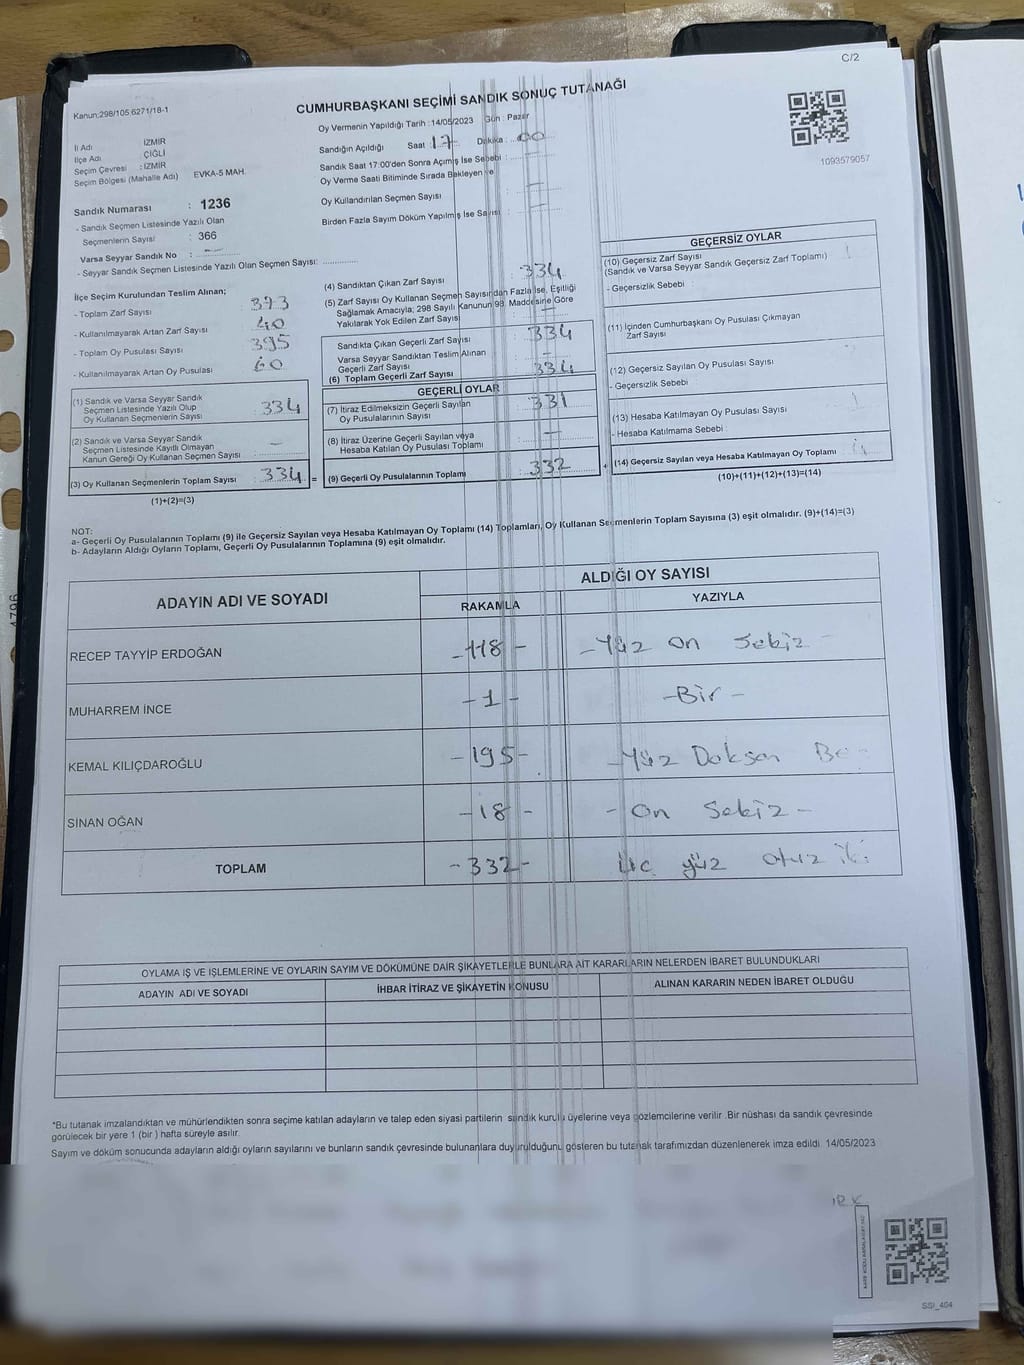 C/2
Kanun:298/105 6271/18-1
CUMHURBAŞKANI SEÇİMİ SANDIK SONUÇ TUTANAĞI
Oy Vermenin Yapıldığı Tarih : 14/05/2023 Gün : Pazar
İl Adı İZMİR
İlçe Adı ÇİĞLİ
Seçim Çevresi : İZMİR
Seçim Bölgesi (Mahalle Adı) EVKA-5 MAH.
Sandığın Açıldığı Saat 17 Dakika 00
Sandık Saat 17:00'den Sonra Açımış İse Sebebi :
Oy Verme Saati Bitiminde Sırada Bekleyen ve
Oy Kullandırılan Seçmen Sayısı —
Birden Fazla Sayım Döküm Yapılmış İse Sayısı : —
1093579057
Sandık Numarası : 1236
- Sandık Seçmen Listesinde Yazılı Olan
Seçmenlerin Sayısı : 366
Varsa Seyyar Sandık No : —
- Seyyar Sandık Seçmen Listesinde Yazılı Olan Seçmen Sayısı:
İlçe Seçim Kurulundan Teslim Alınan;
- Toplam Zarf Sayısı 373
- Kullanılmayarak Artan Zarf Sayısı 40
- Toplam Oy Pusulası Sayısı 395
- Kullanılmayarak Artan Oy Pusulası 60
(1) Sandık ve Varsa Seyyar Sandık
Seçmen Listesinde Yazılı Olup
Oy Kullanan Seçmenlerin Sayısı : 334
(2) Sandık ve Varsa Seyyar Sandık
Seçmen Listesinde Kayıtlı Olmayan
Kanun Gereği Oy Kullanan Seçmen Sayısı : —
(3) Oy Kullanan Seçmenlerin Toplam Sayısı : 334
(1)+(2)=(3)
(4) Sandıktan Çıkan Zarf Sayısı : 334
(5) Zarf Sayısı Oy Kullanan Seçmen Sayısından Fazla İse, Eşitliği
Sağlamak Amacıyla; 298 Sayılı Kanunun 98. Maddesine Göre
Yakılarak Yok Edilen Zarf Sayısı : —
Sandıkta Çıkan Geçerli Zarf Sayısı : 334
Varsa Seyyar Sandıktan Teslim Alınan
Geçerli Zarf Sayısı : -
(6) Toplam Geçerli Zarf Sayısı 334
GEÇERLİ OYLAR
(7) İtiraz Edilmeksizin Geçerli Sayılan
Oy Pusulalarının Sayısı : 331
(8) İtiraz Üzerine Geçerli Sayılan veya
Hesaba Katılan Oy Pusulası Toplamı : —
= (9) Geçerli Oy Pusulalarının Toplamı : 332
GEÇERSİZ OYLAR
(10) Geçersiz Zarf Sayısı
(Sandık ve Varsa Seyyar Sandık Geçersiz Zarf Toplamı)
- Geçersizlik Sebebi :
(11) İçinden Cumhurbaşkanı Oy Pusulası Çıkmayan
Zarf Sayısı
(12) Geçersiz Sayılan Oy Pusulası Sayısı
- Geçersizlik Sebebi
(13) Hesaba Katılmayan Oy Pusulası Sayısı
- Hesaba Katılmama Sebebi :
+ (14) Geçersiz Sayılan veya Hesaba Katılmayan Oy Toplamı
(10)+(11)+(12)+(13)=(14)
NOT:
a- Geçerli Oy Pusulalarının Toplamı (9) ile Geçersiz Sayılan veya Hesaba Katılmayan Oy Toplamı (14) Toplamları, Oy Kullanan Seçmenlerin Toplam Sayısına (3) eşit olmalıdır. (9)+(14)=(3)
b- Adayların Aldığı Oyların Toplamı, Geçerli Oy Pusulalarının Toplamına (9) eşit olmalıdır.
ADAYIN ADI VE SOYADI
ALDIĞI OY SAYISI
RAKAMLA YAZIYLA
RECEP TAYYİP ERDOĞAN -118- -Yüz on Sekiz
MUHARREM İNCE -1- -Bir-
KEMAL KILIÇDAROĞLU -195- -Yüz Doksan
SİNAN OĞAN -18- -On Sekiz-
TOPLAM -332- Üç yüz otuz iki
OYLAMA İŞ VE İŞLEMLERİNE VE OYLARIN SAYIM VE DÖKÜMÜNE DAİR ŞİKAYETLERLE BUNLARA AİT KARARLARIN NELERDEN İBARET BULUNDUKLARI
ADAYIN ADI VE SOYADI İHBAR İTİRAZ VE ŞİKAYETİN KONUSU ALINAN KARARIN NEDEN İBARET OLDUĞU
*Bu tutanak imzalandıktan ve mühürlendikten sonra seçime katılan adayların ve talep eden siyasi partilerin sandık kurulu üyelerine veya gözlemcilerine verilir .Bir nüshası da sandık çevresinde
görülecek bir yere 1 (bir ) hafta süreyle asılır.
Sayım ve döküm sonucunda adayların aldığı oyların sayılarını ve bunların sandık çevresinde bulunanlara duyurulduğunu gösteren bu tutanak tarafımızdan düzenlenerek imza edildi. 14/05/2023
SSI_404